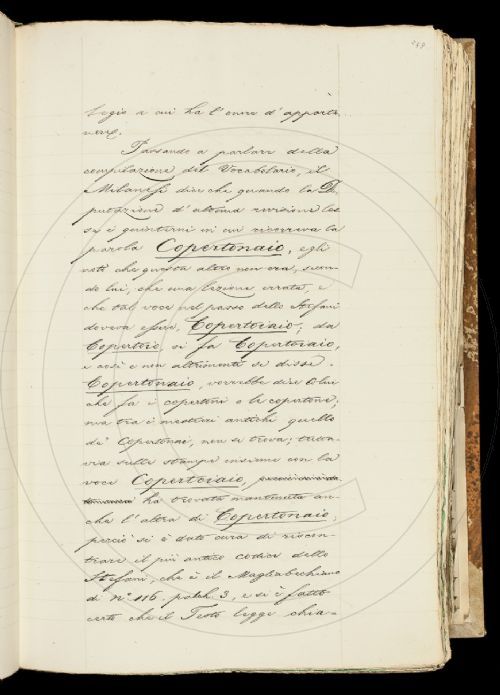 249
legio a cui ha l'onore d'apparte-
nere.
Passando a parlare della
compilazione del Vocabolario, il
Milanesi dice che quando la De-
putazione d'ultima revisione les-
se i quinterni in cui ricorreva la
parola Copertonaio, egli
notò che questa altro non era, secon-
do lui, che una lezione errata, e
che tal voce nel passo dello Stefani
doveva essere, Copertoiaio; da
Copertoio si fa Copertoiaio,
e così e non altrimenti si disse.
Copertonaio, vorrebbe dire Colui
che fa i copertoni o le copertone;
ma tra i mestieri antichi quello
de' Copertonai, non si trova; tutta-
via sulle stampe insieme con la
voce Copertoiaio,
ha trovato mantenuta an-
che l'altra di Copertonaio;
perciò si è dato cura di riscon-
trare il più antico codice dello
Stefani, che è il Magliabechiano
di N.º 116. palch. 3, e si è fatto
certo che il Testo legge chia-